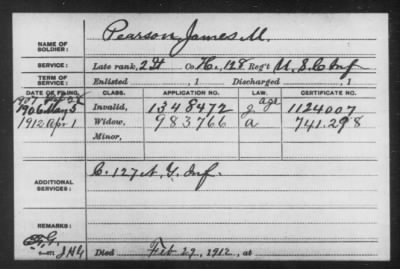 NAME OF SOLDIER: Pearson James M.
SERVICE: Late rank, 2 Lt Co. H., 128 Reg't U. S. C. Inf
TERM OF SERVICE: Enlisted , 1 Discharged , 1
DATE OF FILING. CLASS. APPLICATION NO. LAW. CERTIFICATE NO.
1907
1906 Mar 5 Invalid, 1348472 g age 1124007
1912 Apr 1 Widow, 983766 a 741.298
Minor,
ADDITIONAL SERVICES: C. 127 N. Y. Inf.
REMARKS:
Died Feb 29, 1912, at